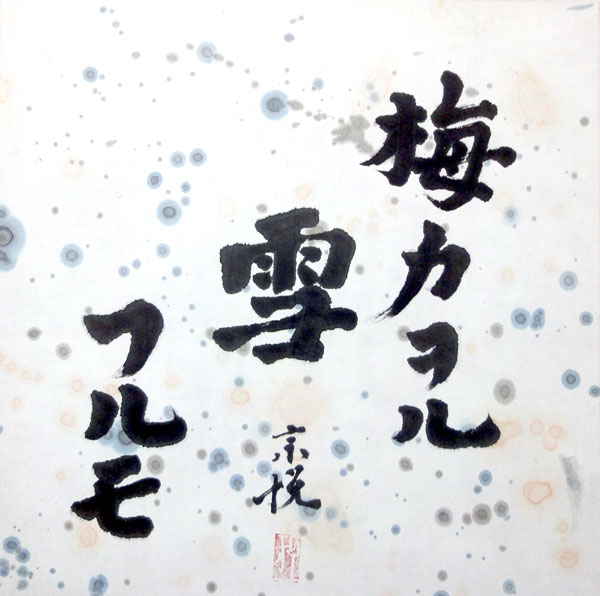 梅カヲル
雪
フルモ
宗悦